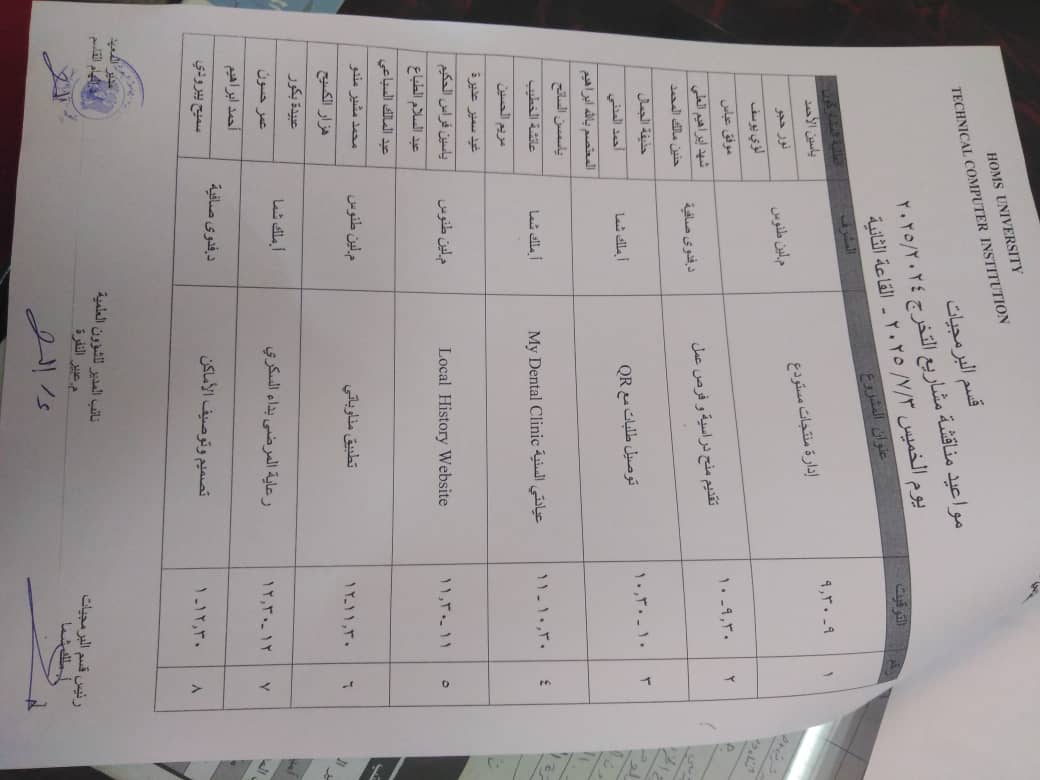 HOMS UNIVERSITY
TECHNICAL COMPUTER INSTITUTION
قسم البرمجيات
مواعيد مناقشة مشاريع التخرج ٢٠٢٥/٢٠٢٤
يوم الخميس ٢٠٢٥/٧/٣ - القاعة الثانية
رقم التوقيت عنوان المشروع المشرف
١ ٩-٩,٣٠ إدارة منتجات مستودع م.لين طنوس
ياسين الأحمد
نور حجو
لؤي يوسف
٢ ٩,٣٠-١٠ تقديم منح دراسية و فرص عمل د.فدوى صافية
موفق عباس
شهد ابراهيم العلي
حنين مالك المحمد
٣ ١٠-١٠,٣٠ توصيل طلبات مع QR أ.ملك شما
حذيفة الجمال
أحمد المدني
المعتصم بالله ابراهيم
٤ ١٠,٣٠-١١ عيادتي السنية My Dental Clinic أ.ملك شما
ياسمين السايح
عائشة الخطيب
مريم الحسين
٥ ١١-١١,٣٠ Local History Website م.لين طنوس
غيد سمير عنبرة
ياسين فراس الحكيم
عبد السلام الطباع
٦ ١١,٣٠-١٢ تطبيق مناوباتي م.لين طنوس
عبد المالك السباعي
محمد منير مندو
هزار الكسيح
٧ ١٢-١٢,٣٠ رعاية المرضى بداء السكري أ.ملك شما
عبيدة بكور
عمر حسون
٨ ١٢,٣٠-١ تصميم وتوصيف الأماكن د.فدوى صافية
أحمد ابراهيم
سميح بيرودي
رئيس قسم البرمجيات
أ.ملك شما
نائب المدير للشؤون العلمية
م.عبير النقرة
مدير المعهد